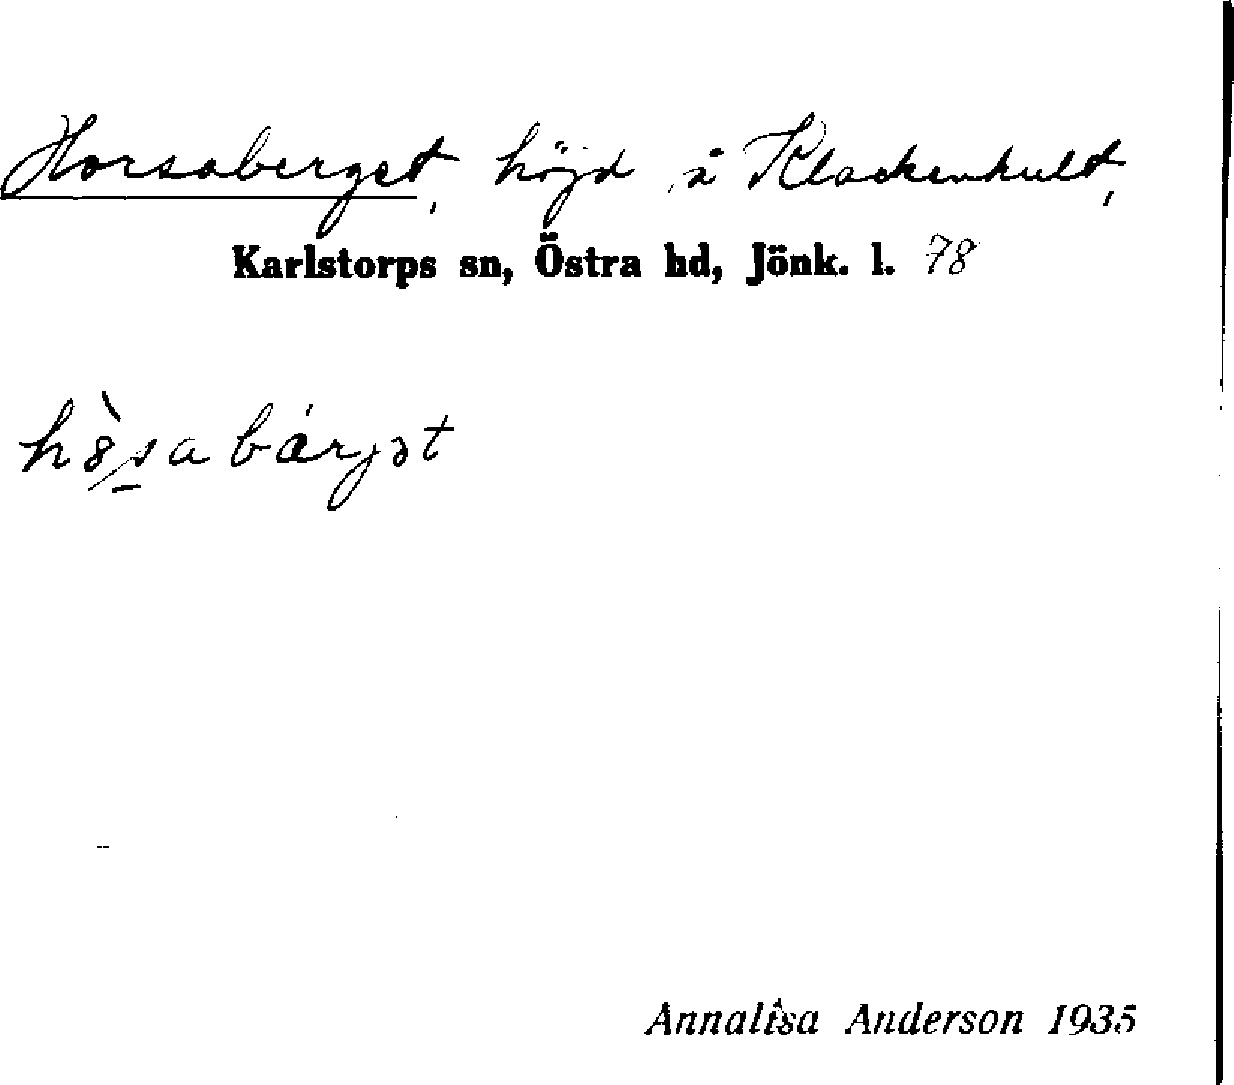 Horsaberget, höjd å Klackenhult,
Karlstorps sn, Östra hd, Jönk. l. 78
Annalisa Anderson 1935